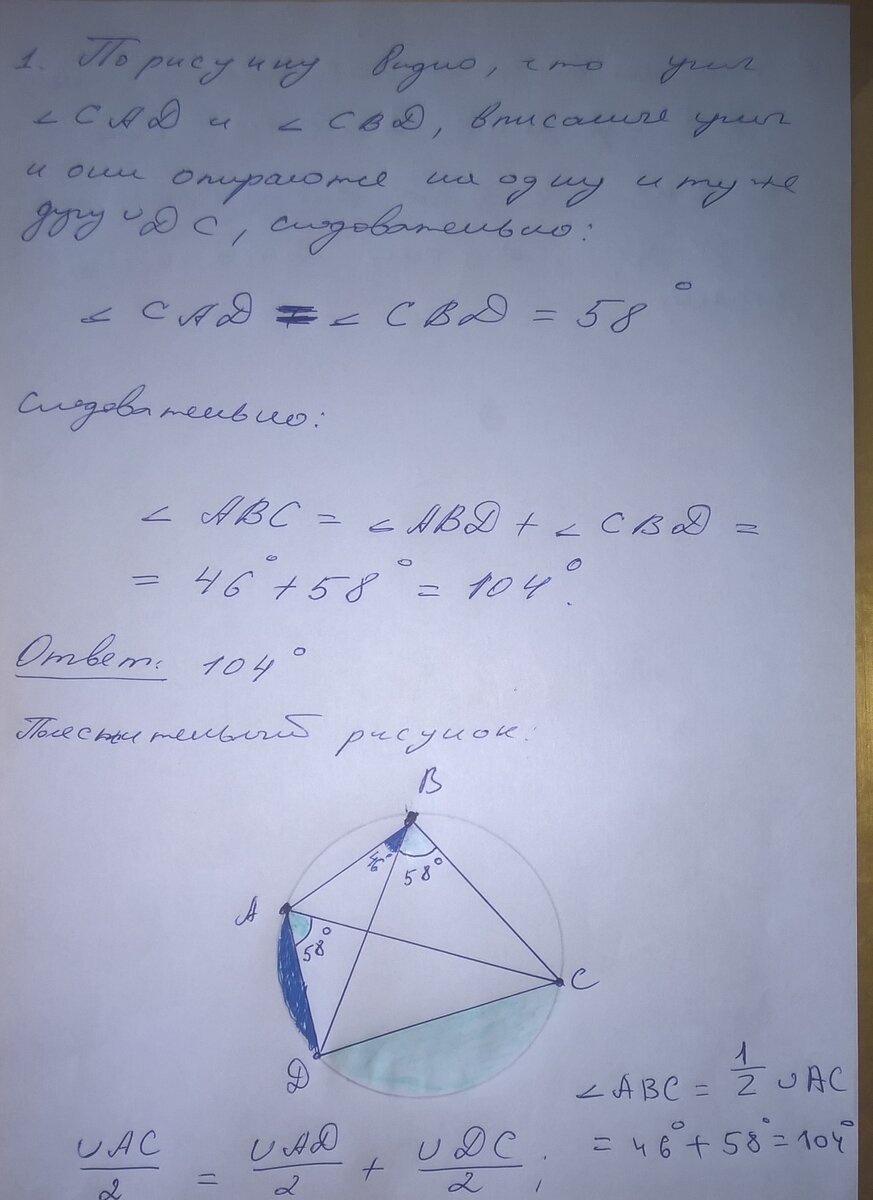 1. По рисунку видно, что углы
∠CAD и ∠CBD, вписаные углы
и они опираются на одну и ту же
дугу ∪DC, следовательно:
∠CAD = ∠CBD = 58°
Следовательно:
∠ABC = ∠ABD + ∠CBD =
= 46° + 58° = 104°.
Ответ: 104°
Пояснительный рисунок:
B
46°
58°
A
58°
C
D
∠ABC = 1/2 ∪AC
= 46° + 58° = 104°
∪AC/2 = ∪AD/2 + ∪DC/2 ;